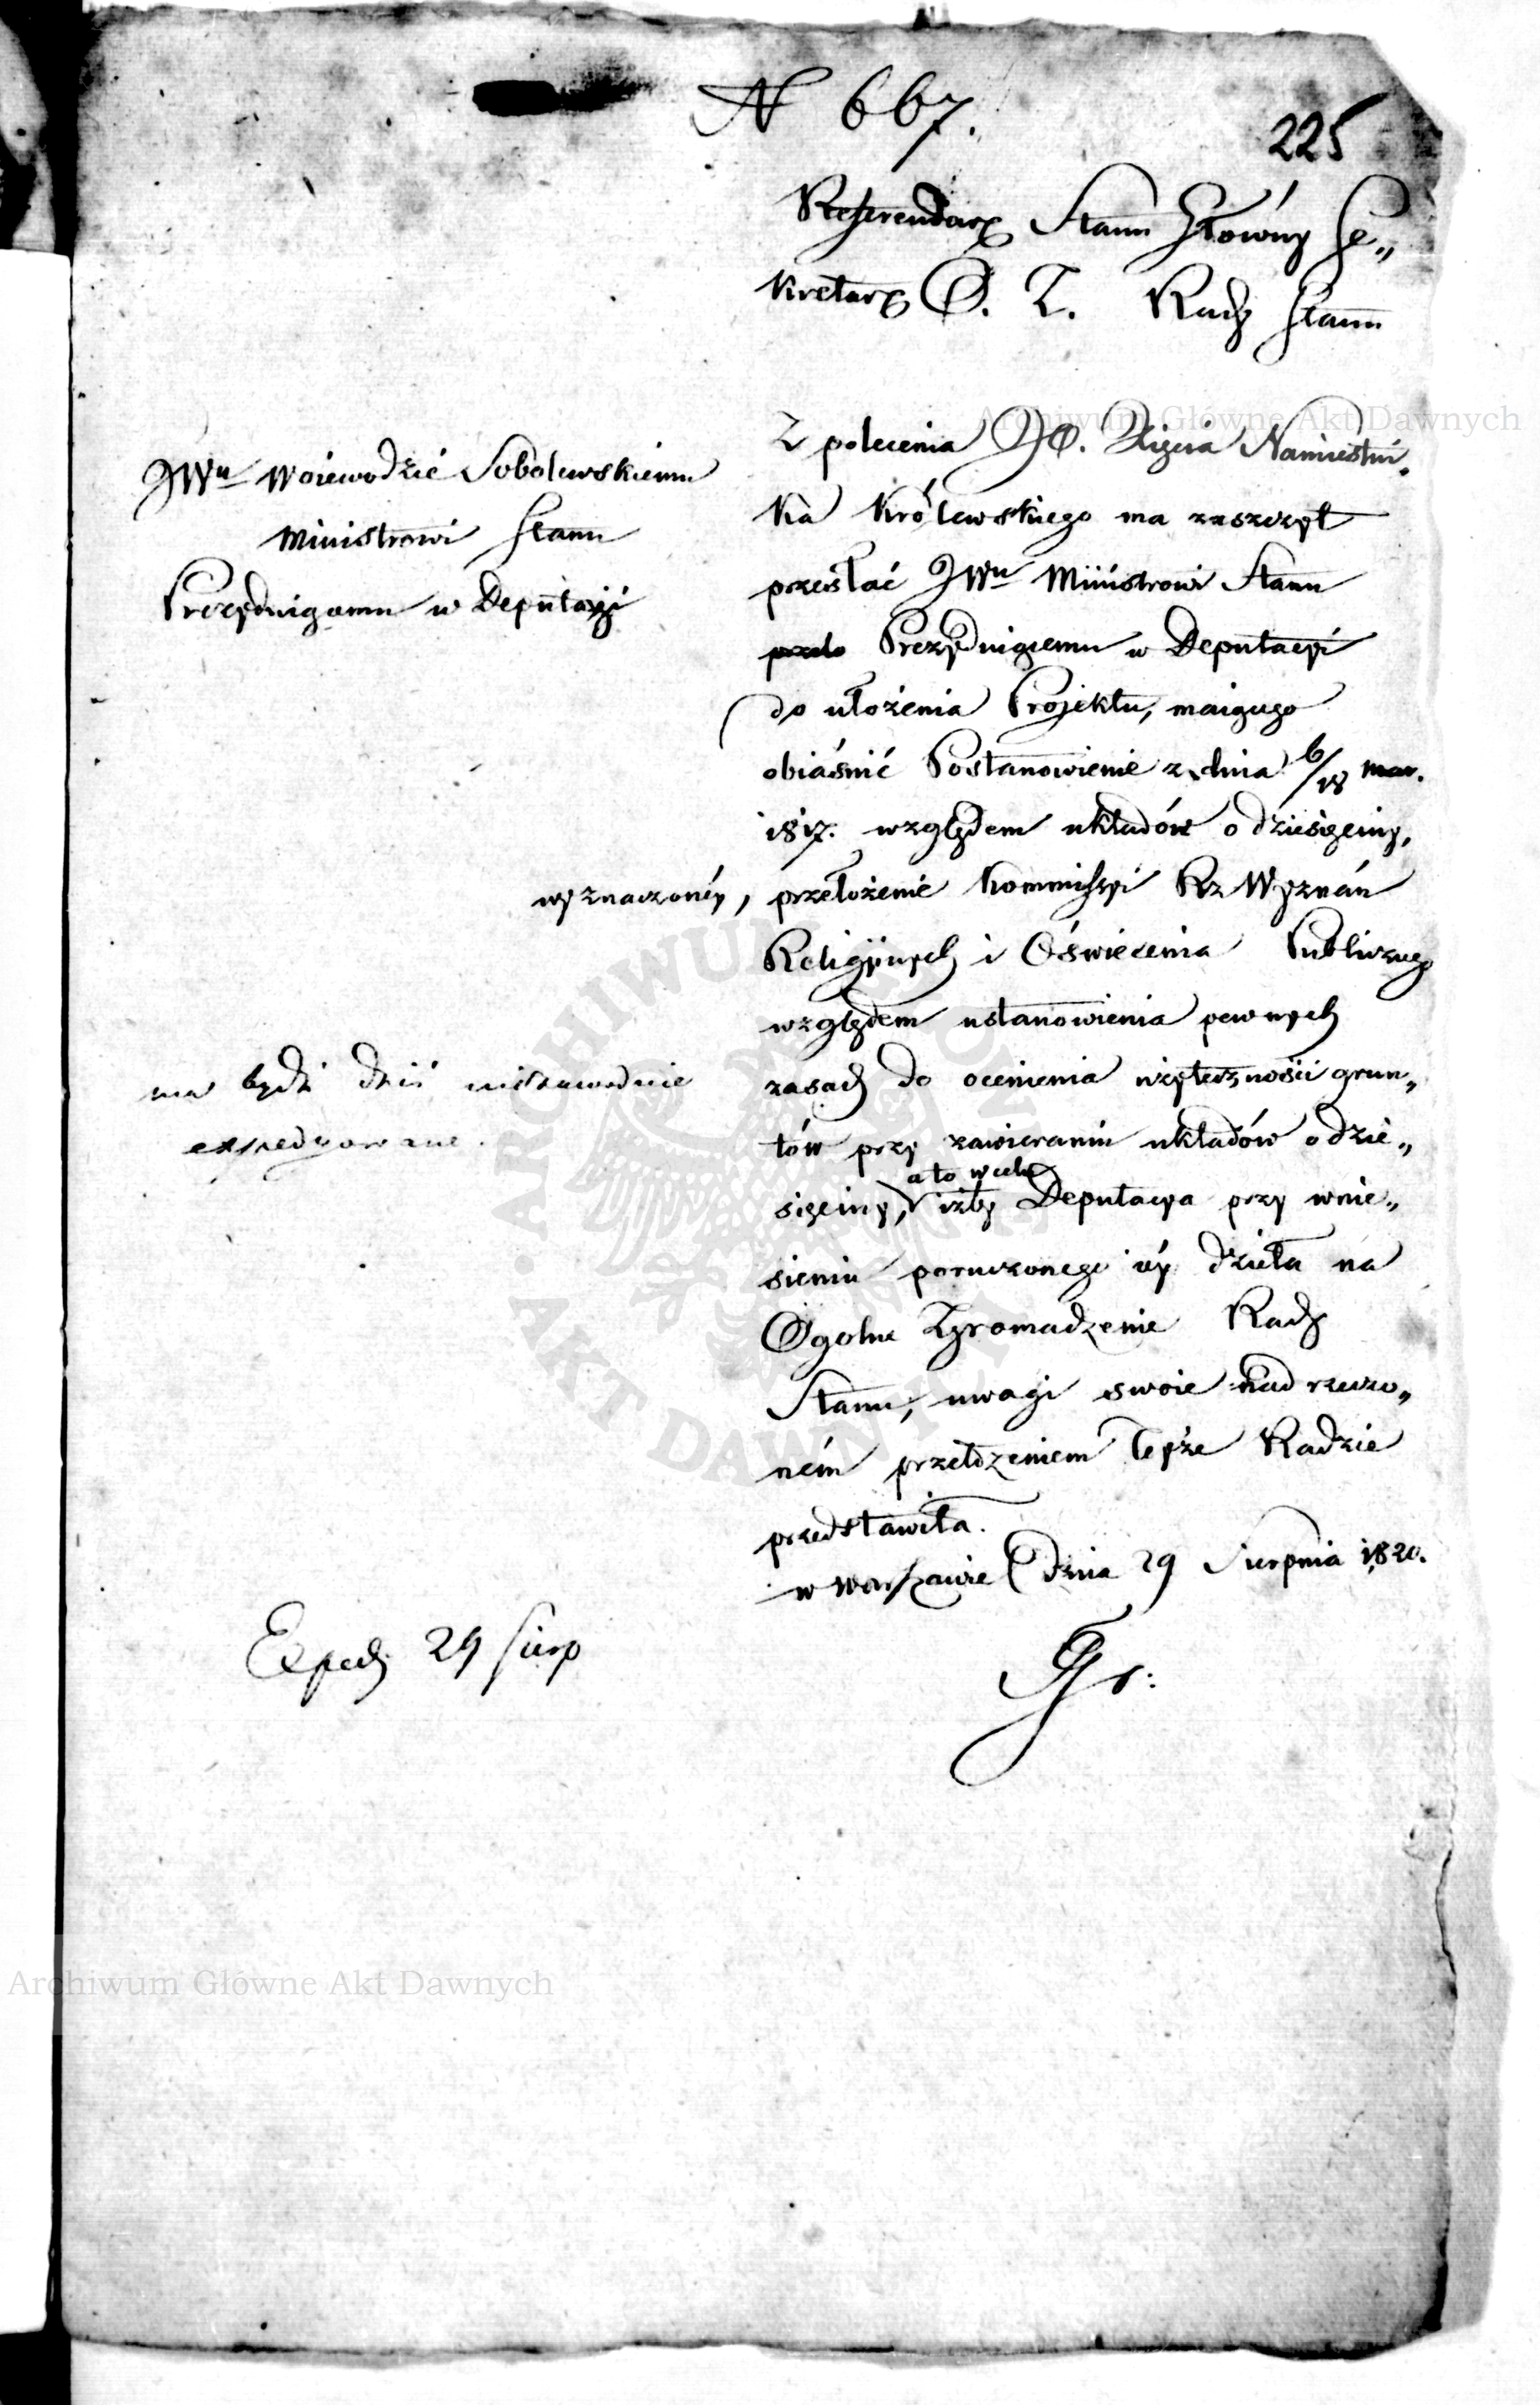 N 667.
225
Referendarz Stanu Główny Se„
kretarz O. Z. Rady Stanu
JWu Woiewodzie Sobolewskiemu
Ministrowi Stanu
Prezyduiącemu w Deputacyi
Z polecenia JO. Xięcia Namiestni„
ka Królewskiego ma zaszczyt
przesłać JWu Ministrowi Stanu
Prezyduiącemu w Deputacyi
do ułożenia Projektu, maiącego
obiaśnić Postanowienie z dnia 6/18 mar.
1817. względem układów o dziesięciny,
wyznaczonéy,
przełożenie Kommissyi Rz Wyznań
Religiynych i Oświecenia Publicznego
względem ustanowienia pewnych
zasad do ocenienia użyteczności grun„
tów przy zawieraniu układów o dzie„
a to w celu
sięciny, iżby Deputacya przy wnie„
sieniu poruczonego iéy dzieła na
Ogolne Zgromadzenie Rady
Stanu, uwagi swoie nad rzeczo„
ném przełożeniem teyże Radzie
przedstawiła.
w Warszawie dnia 29 Sierpnia 1820.
ma bydź dziś niezawodnie
expedyowane.
Exped. 29 Sierp
Gr:
Archiwum Główne Akt Dawnych
Archiwum Główne Akt Dawnych
ARCHIWUM GŁÓWNE AKT DAWNYCH